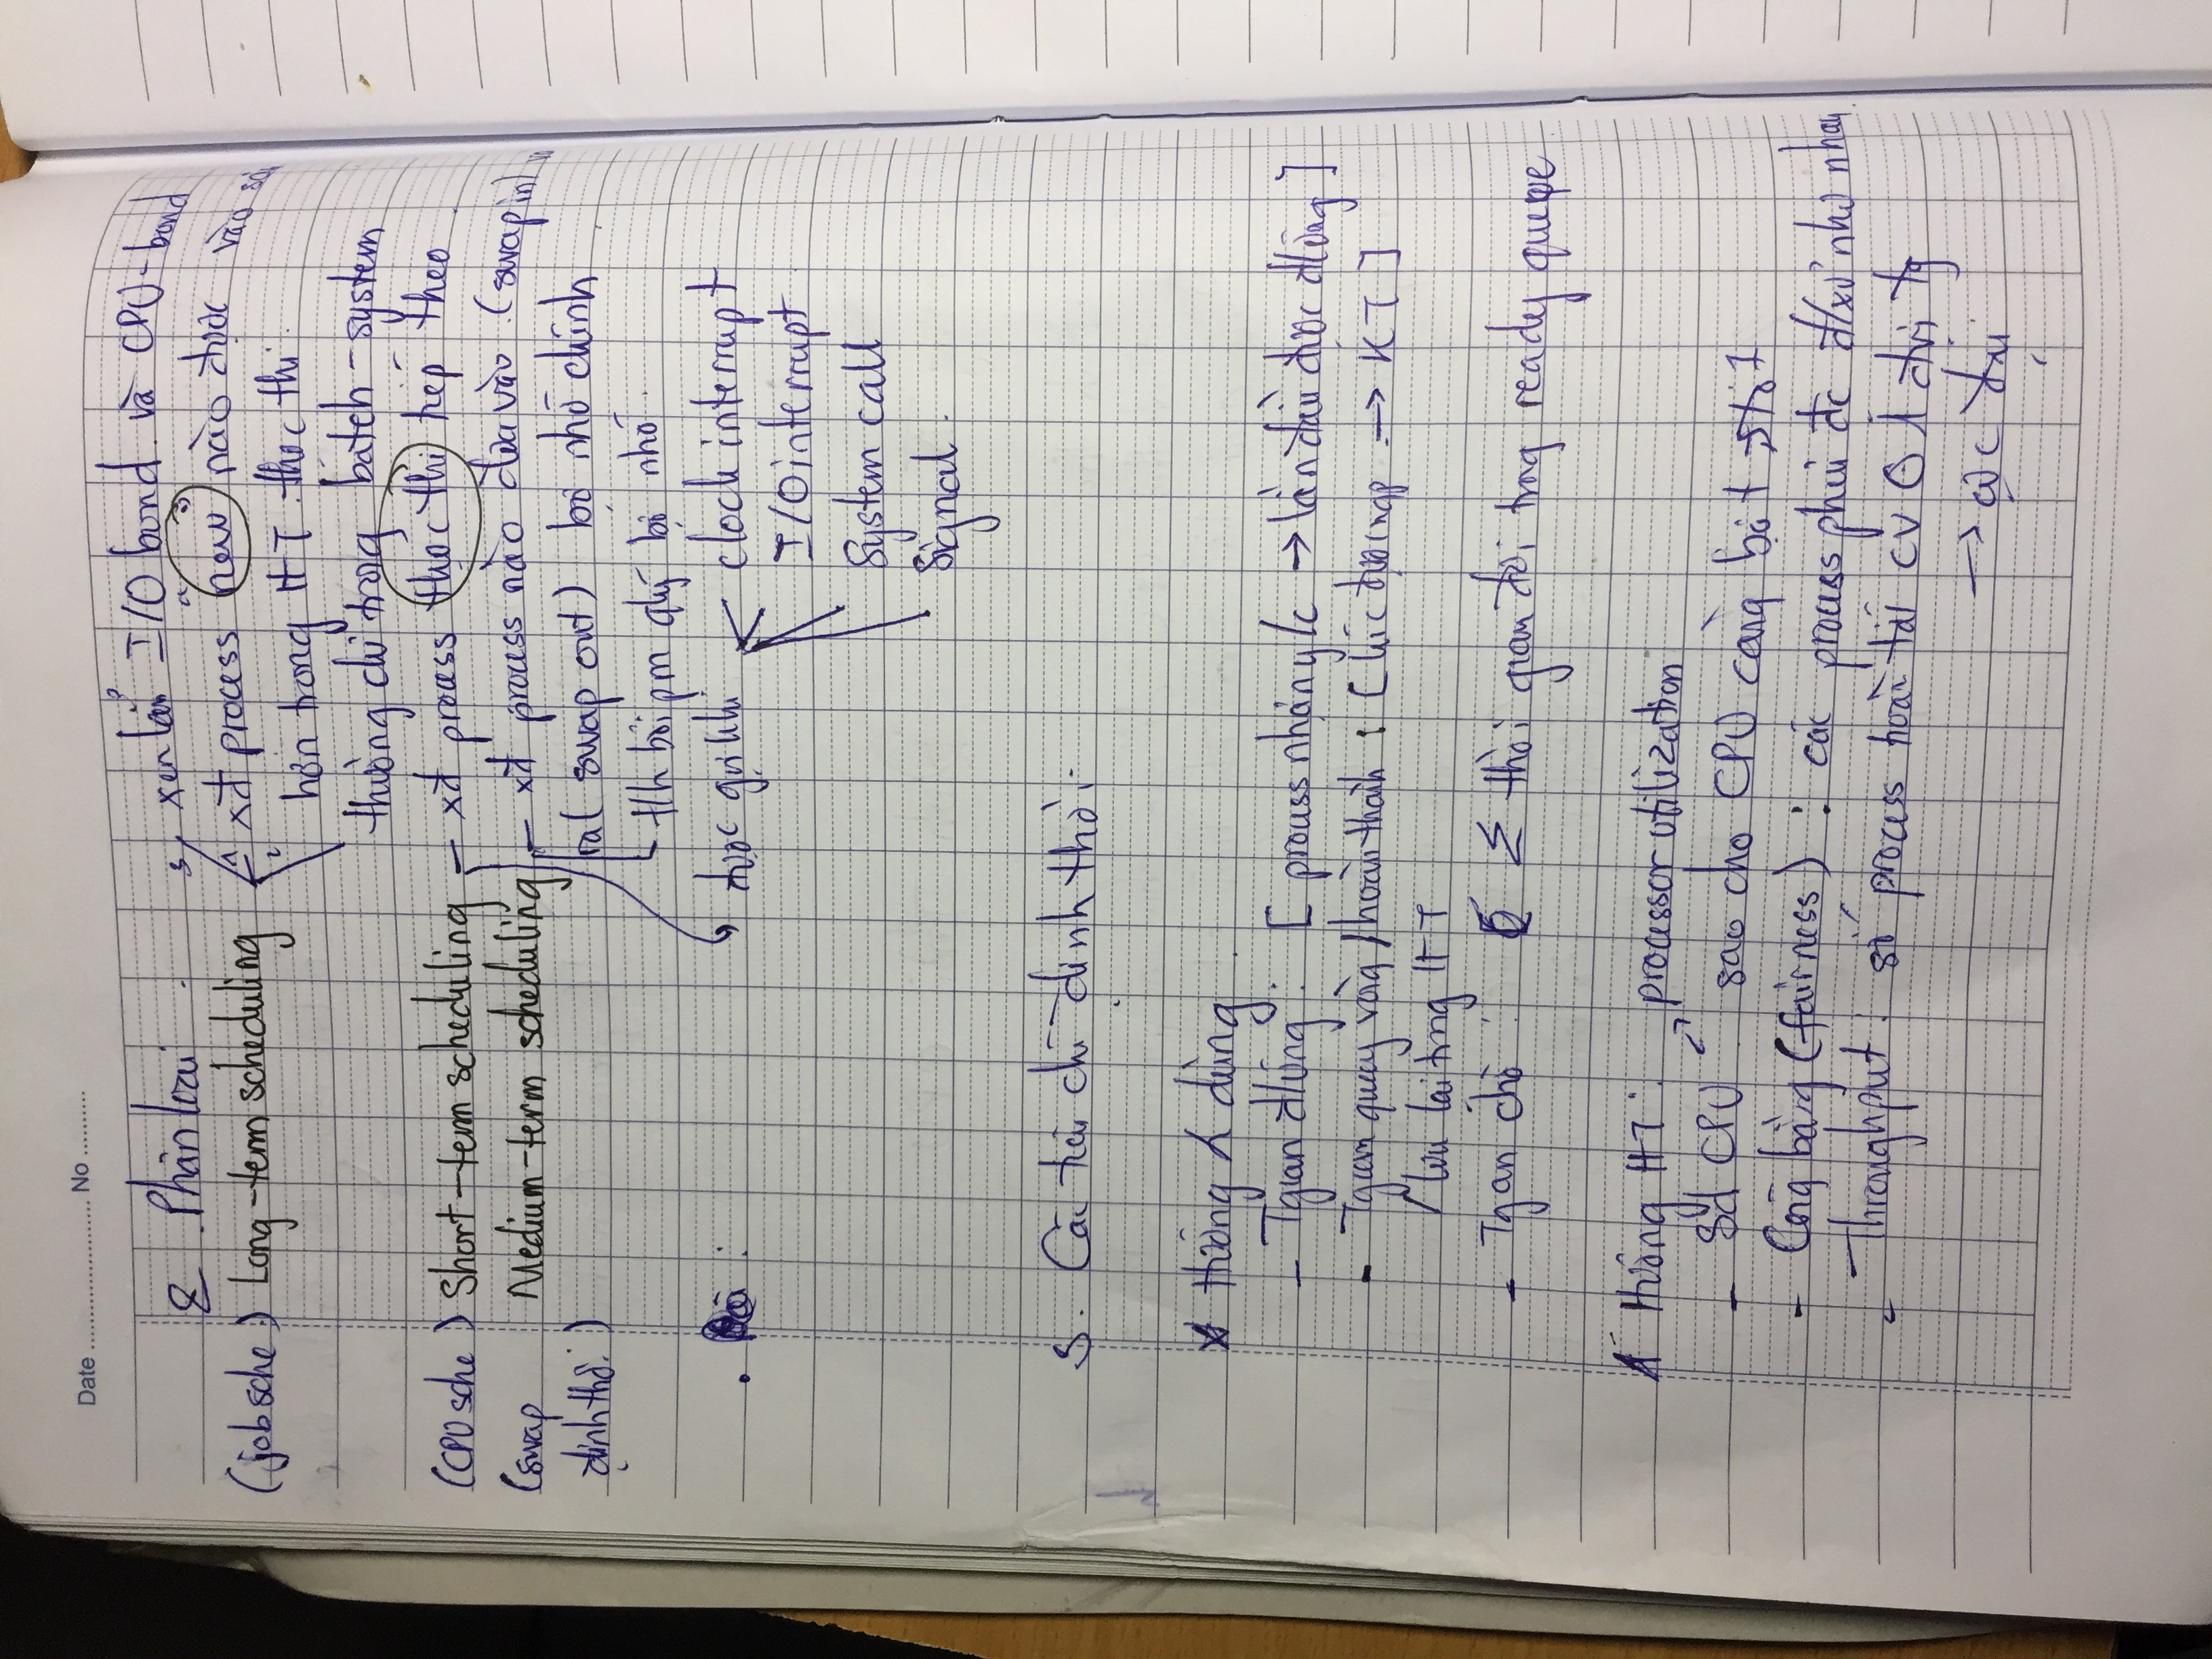 Date ........................ No ..........
2 Phân loại
xen lẫn I/O bond và CPU-bond
(job sche) Long-term scheduling
xđ process "new" nào được vào
hơn trong HT thực thi
thường chỉ trong batch-system
(CPU sche) Short-term scheduling – xđ process thực thi tiếp theo
(swap Medium-term scheduling – xđ process nào đưa vào (swap in)
định thời) ra (swap out) bộ nhớ chính
t/h bởi pm qlý bộ nhớ.
được gọi khi < clock interrupt
I/O interrupt
System call
Signal
Các tiêu chí định thời
* Hướng dùng
- Tgian đ/ứng : [ process nhận y/c → lần đầu được đ/ứng ]
- Tgian quay vòng / hoàn thành : [ lúc được nạp → KT ]
/ lưu lại trong HT
- Tgian chờ : Σ thời gian đợi trong ready queue
* Hướng HT : processor utilization
- Sd CPU sao cho CPU càng bận
- Công bằng (fairness) : các process phải đc đ/xử như nhau
- Throughput : số process hoàn tất cv 1 đvị tg
→ cực đại